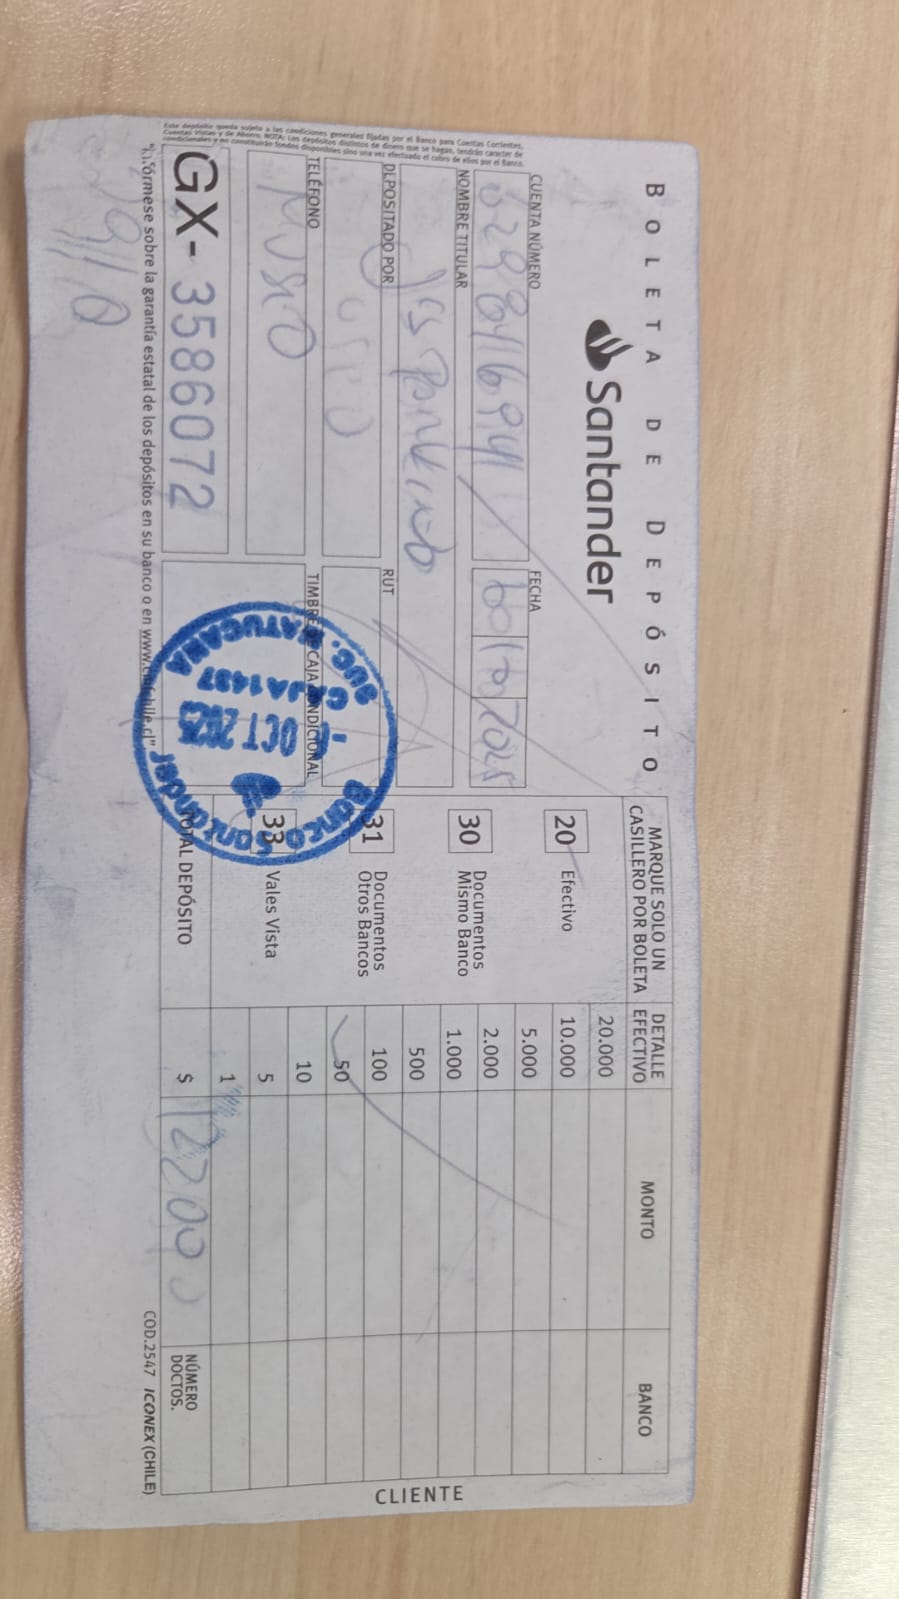 BOLETA DE DEPÓSITO
Santander
CUENTA NÚMERO
FECHA
NOMBRE TITULAR
DEPOSITADO POR
RUT
TELÉFONO
TIMBRE CAJA CONDICIONAL
GX- 3586072
Este depósito queda sujeto a las condiciones generales fijadas por el Banco para Cuentas Corrientes,
Cuentas Vistas y de Ahorro. NOTA: Los depósitos distintos de dinero que se hagan, tendrán carácter de
condicionales y no constituirán fondos disponibles sino una vez efectuado el cobro de ellos por el Banco.
Banco Santander
OCT 2025
CAJA 1437
SUC. MATUCANA
MARQUE SOLO UN
CASILLERO POR BOLETA
20 Efectivo
30 Documentos
Mismo Banco
31 Documentos
Otros Bancos
33 Vales Vista
TOTAL DEPÓSITO
DETALLE
EFECTIVO
MONTO
BANCO
20.000
10.000
5.000
2.000
1.000
500
100
50
10
5
1
$ 12200
NÚMERO
DOCTOS.
CLIENTE
"Infórmese sobre la garantía estatal de los depósitos en su banco o en www.cmfchile.cl"
COD.2547 ICONEX (CHILE)